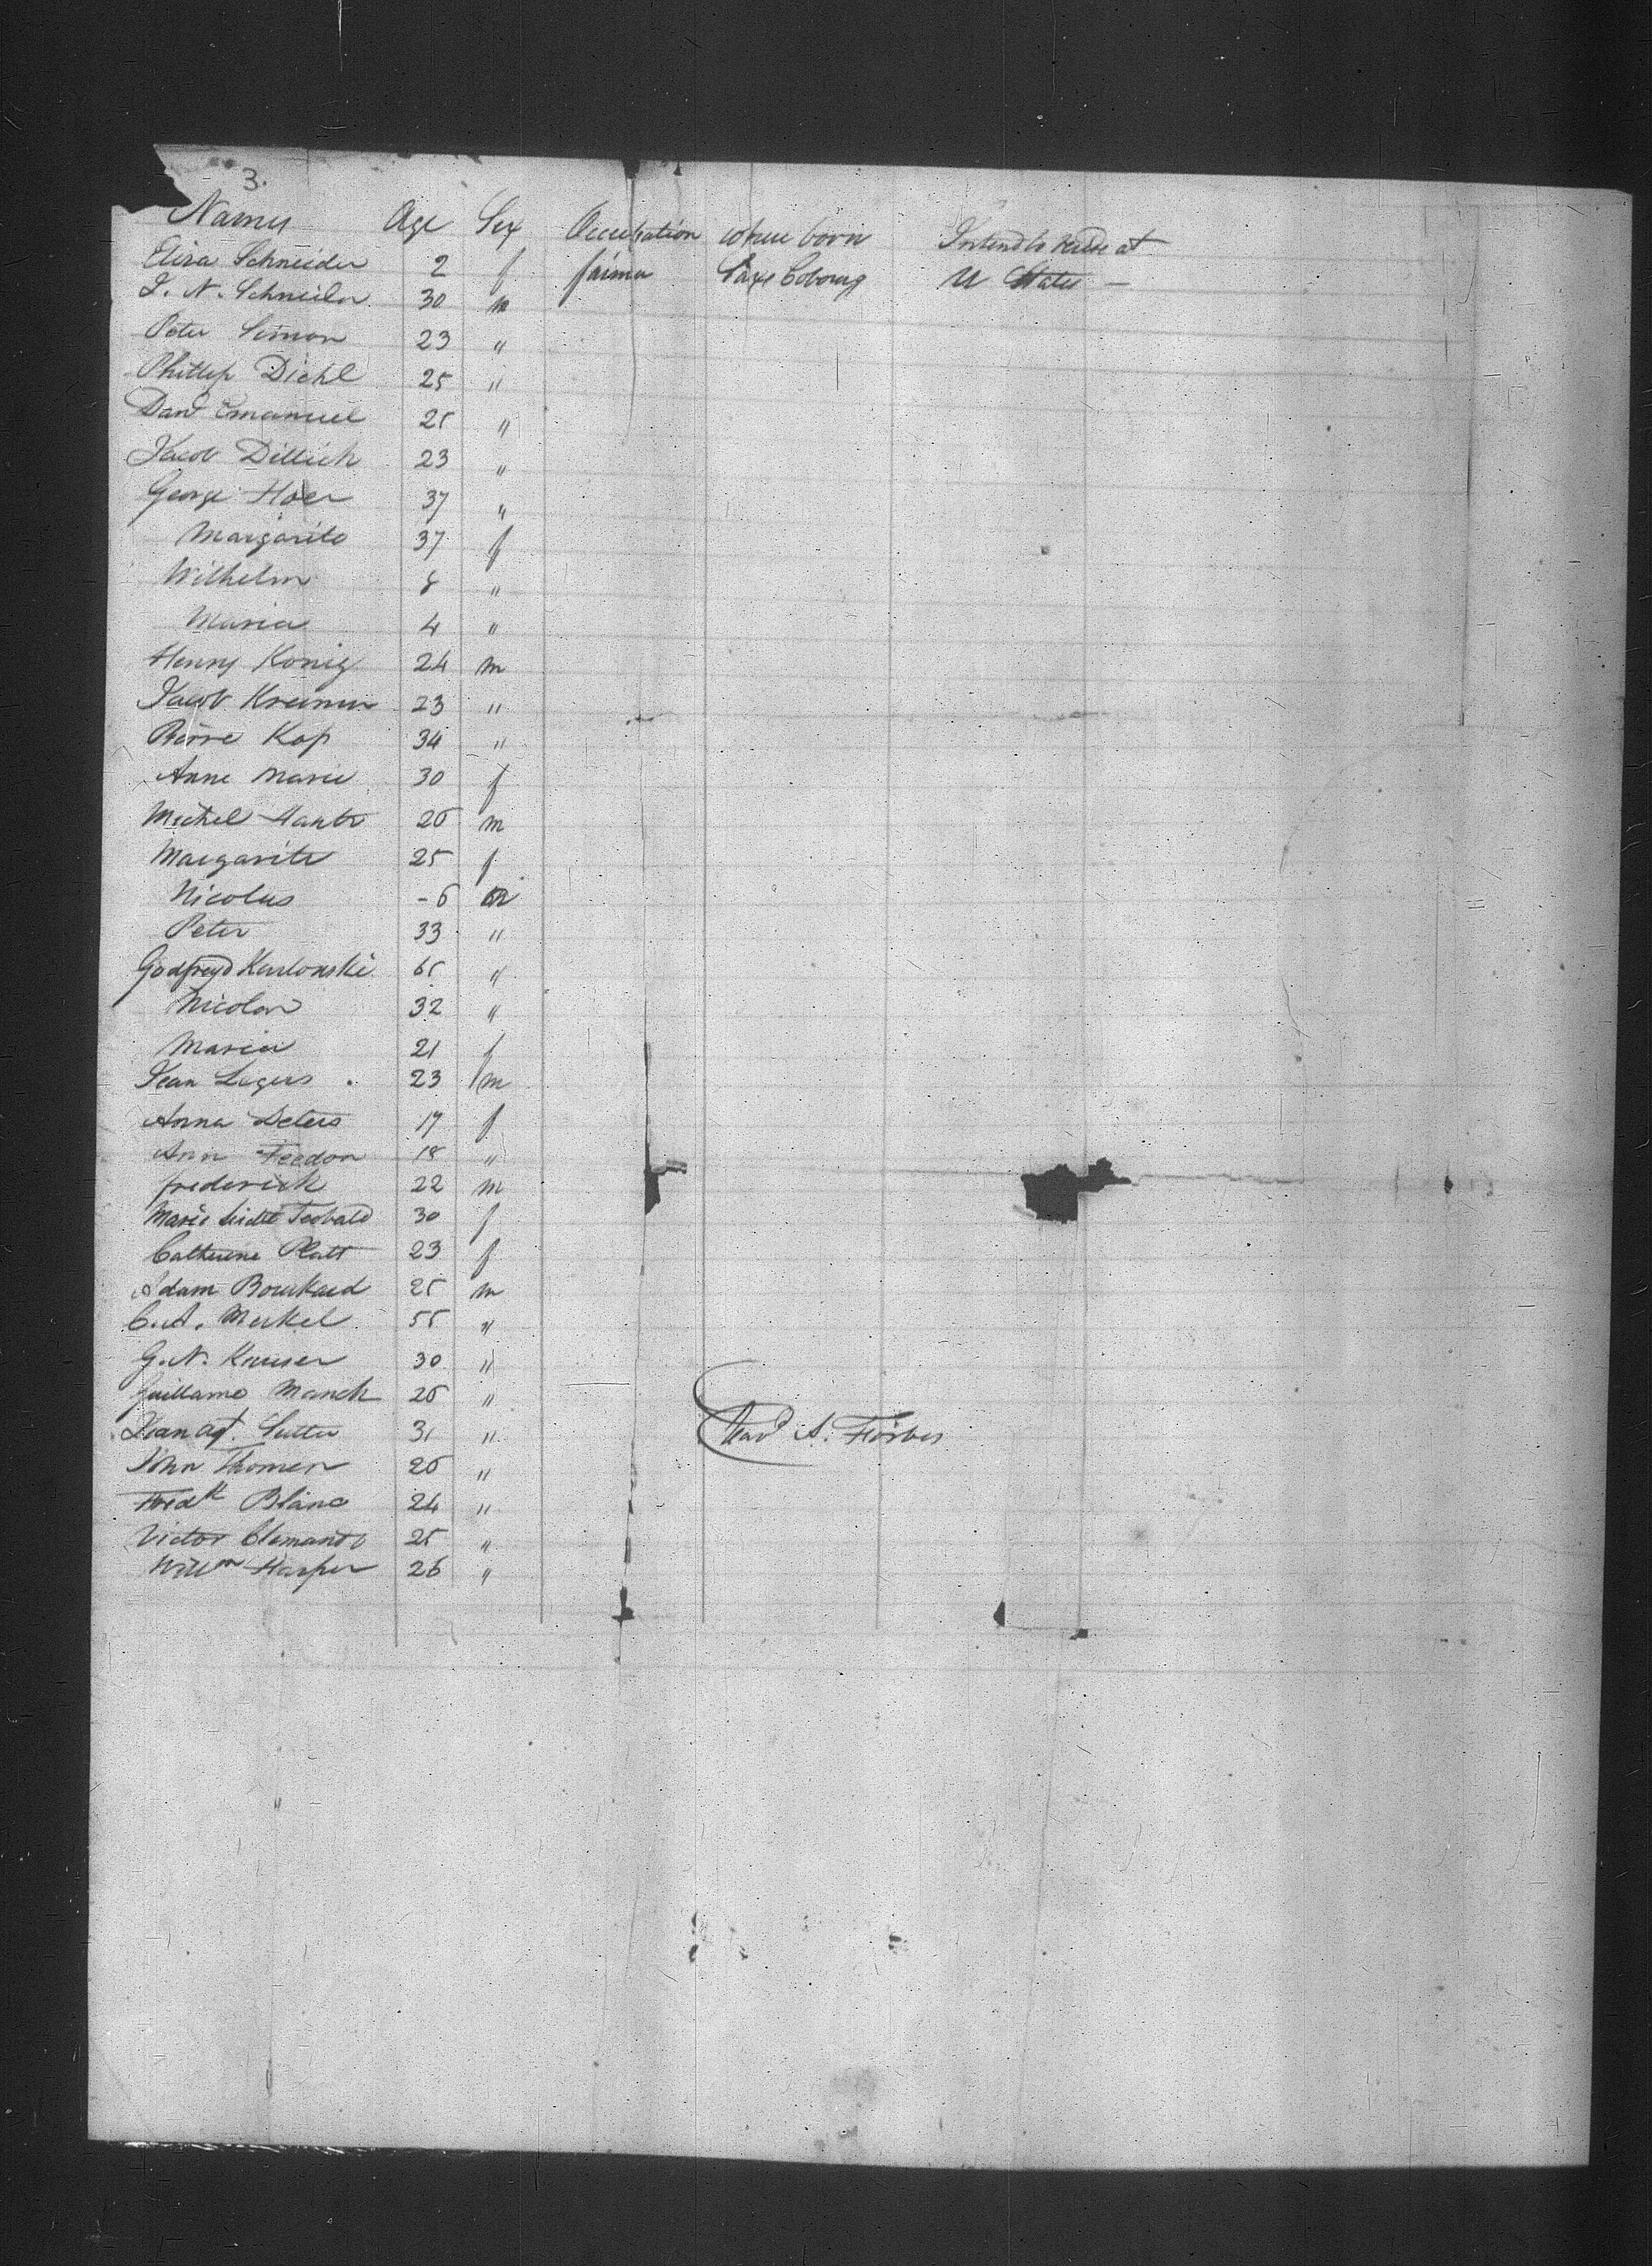 3.
Names Age Sex Occupation where born Intend to reside at
Eliza Schneider 2 f farmer Saxe Cobourg U States —
J. N. Schneider 30 m
Peter Simon 23 "
Phillip Diehl 25 "
Danl Emanuel 25 "
Jacob Dillich 23 "
George Hoer 37 "
Margarite 37 f
Wilhelm 8 "
Maria 4 "
Henry Konig 24 m
Jacob 23 "
Pierre Kop 34 "
Anne Marie 30 f
Michel 26 m
Margarite 25 f
Nicolus - 6 m
Peter 33 "
Godfreyd 65 "
Nicolas 32 "
Maria 21 f
Jean Legers 23 m
Anna Peters 17 f
Ann Feedon 18 "
frederick 22 m
Marie Teobald 30 f
Catherine Platt 23 f
Adam Bourkard 25 m
C. A. Merkel 55 "
G. N. 30 "
Guillame Manch 26 "
Jean Sutter 31 " A. Forbes
John Thomen 26 "
Fredk Blanc 24 "
Victor 25 "
Willm Harper 26 "